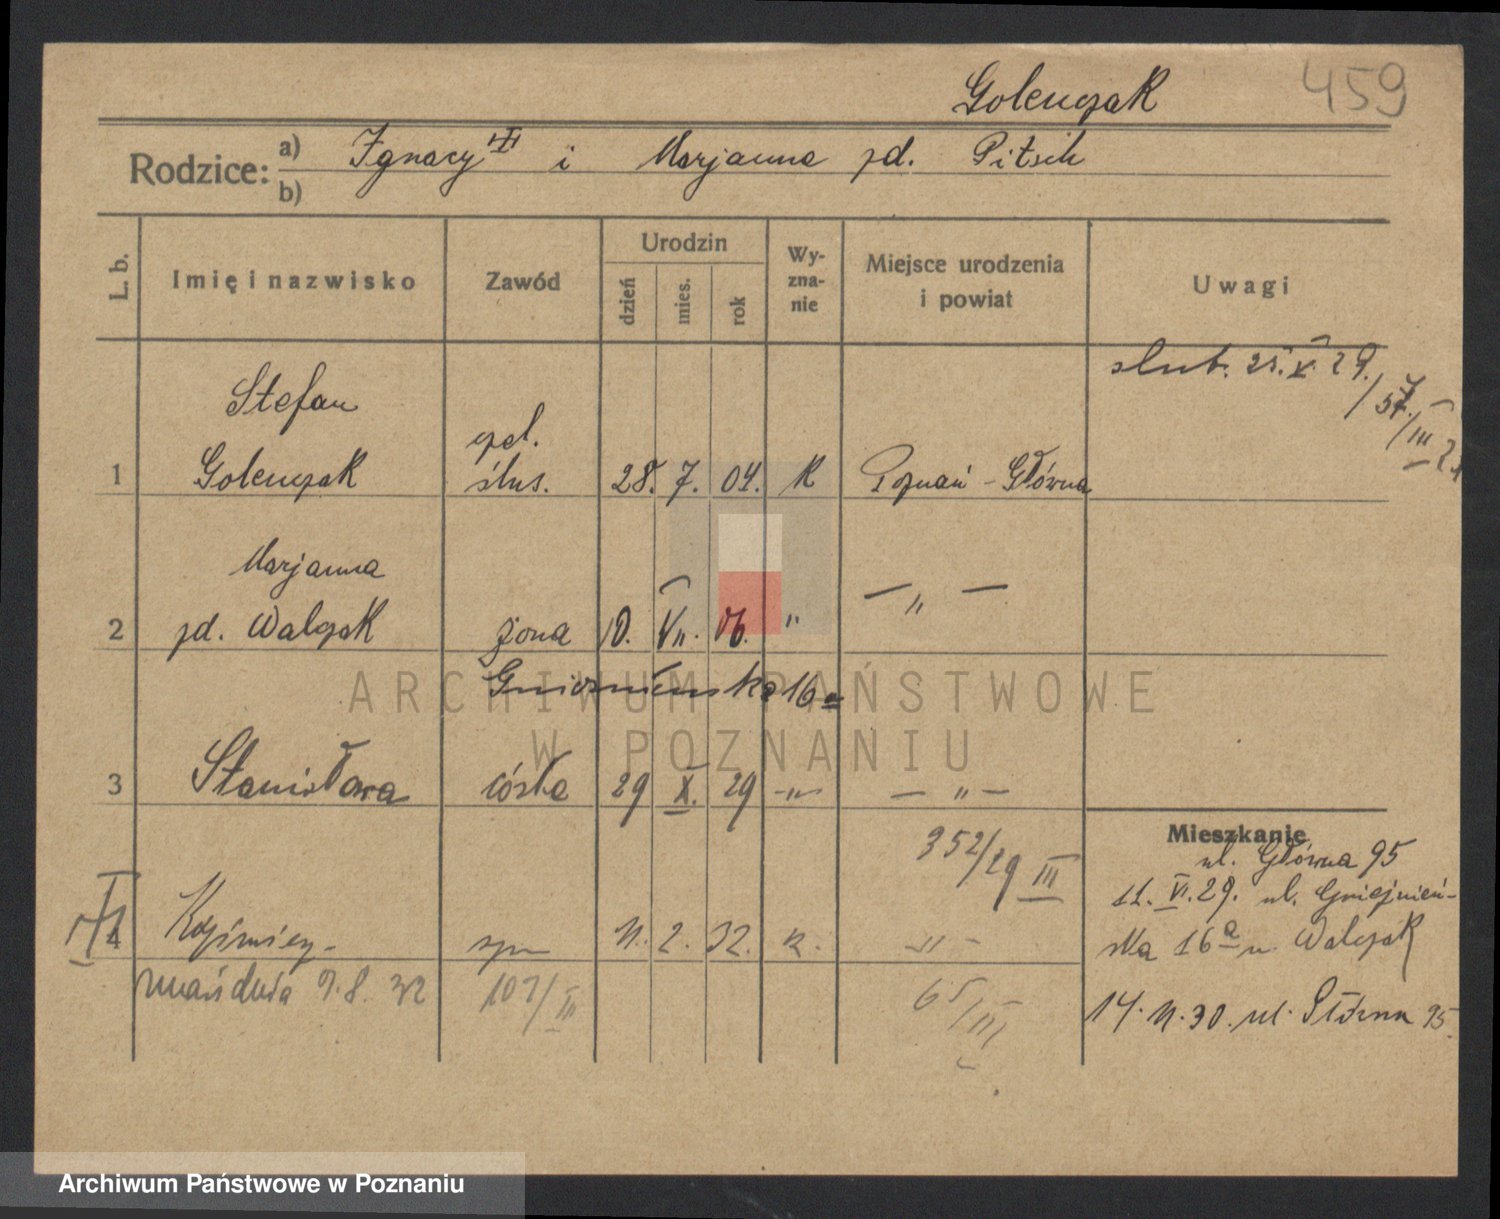 Golenczak 459
Rodzice: a) Ignacy i Marjanna zd. Pitsch
b)
L. b. Imię i nazwisko Zawód Urodzin dzień mies. rok Wyznanie Miejsce urodzenia i powiat Uwagi
ślub. 25. V. 29.
Stefan
czel.
1 Golenczak ślus. 28. 7. 04. K Poznań - Główna
Marjanna
2 zd. Walczak żona 10. VII. 06. " — " —
Gnieźnieńska 16a
ARCHIWUM PAŃSTWOWE
W POZNANIU
3 Stanisława córka 29 X. 29 -"- — " —
352/29 III
Mieszkanie
ul. Główna 95
11. VI. 29. ul. Gnieźnień-
ska 16a u. Walczak
4 Kazimierz syn 11. 2. 32. K. - " -
zmarł dnia 9. 8. 32 107/III 65/III
14. 11. 30. ul. Główna 95.
Archiwum Państwowe w Poznaniu